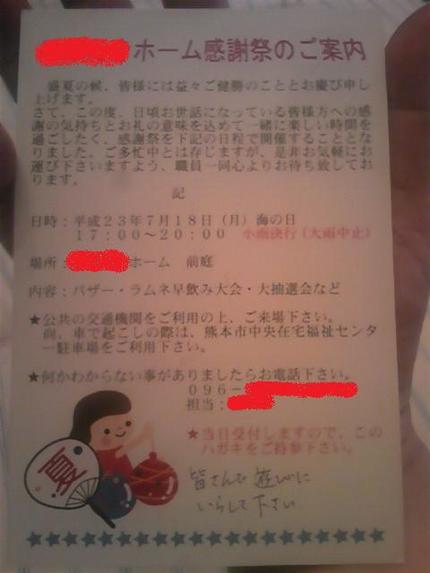 ホーム感謝祭のご案内
盛夏の候、皆様には益々ご健勝のこととお慶び申し
上げます。
さて、この度、日頃お世話になっている皆様方への感
謝の気持ちとお礼の意味を込めて一緒に楽しい時間を
過ごしたく、感謝祭を下記の日程で開催することとな
りました。ご多忙中とは存じますが、是非お気軽にお
運び下さいますよう、職員一同心よりお待ち致してお
ります。
記
日時：平成23年7月18日（月）海の日
17：00～20：00 小雨決行（大雨中止）
場所： ホーム 前庭
内容：バザー・ラムネ早飲み大会・大抽選会など
★公共の交通機関をご利用の上、ご来場下さい。
尚、車で起こしの際は、熊本市中央在宅福祉センタ
ー駐車場をご利用下さい。
★何かわからない事がありましたらお電話下さい。
096－
担当：
★当日受付しますので、この
ハガキをご持参下さい。
夏
皆さんで遊びに
いらして下さい